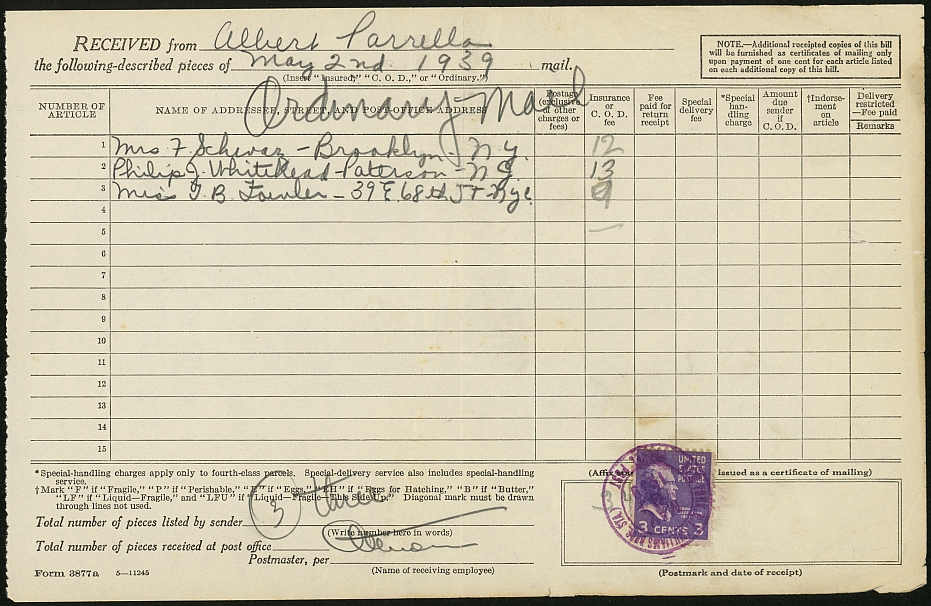 RECEIVED from Albert Parrella
the following-described pieces of May 2nd 1939 mail.
(Insert "Insured," "C. O. D.," or "Ordinary.")
Ordinary Mail
NOTE.—Additional receipted copies of this bill
will be furnished as certificates of mailing only
upon payment of one cent for each article listed
on each additional copy of this bill.
NUMBER OF ARTICLE
NAME OF ADDRESSEE, STREET, AND POST-OFFICE ADDRESS
Postage (exclusive of other charges or fees)
Insurance or C. O. D. fee
Fee paid for return receipt
Special delivery fee
*Special handling charge
Amount due sender if C. O. D.
†Indorsement on article
Delivery restricted —Fee paid
Remarks
1 Mrs F. Schwaz - Brooklyn - N.Y. 12
2 Philip J. Whitehead - Patterson - N.J. 13
3 Miss G. B. Fowler - 39 E. 68th St - Nyc. 9
4
5 —
6
7
8
9
10
11
12
13
14
15
*Special-handling charges apply only to fourth-class parcels. Special-delivery service also includes special-handling
service.
†Mark "F" if "Fragile," "P" if "Perishable," "E" if "Eggs," "EH" if "Eggs for Hatching," "B" if "Butter,"
"LF" if "Liquid—Fragile," and "LFU" if "Liquid—Fragile—This Side Up." Diagonal mark must be drawn
through lines not used.
Total number of pieces listed by sender 3 three
(Write number here in words)
Total number of pieces received at post office
Postmaster, per
(Name of receiving employee)
Form 3877a 5—11245
(Affix issued as a certificate of mailing)
UNITED
STATES
POSTAGE
3 CENTS 3
WILLIAMS BRDG. STA.
(Postmark and date of receipt)